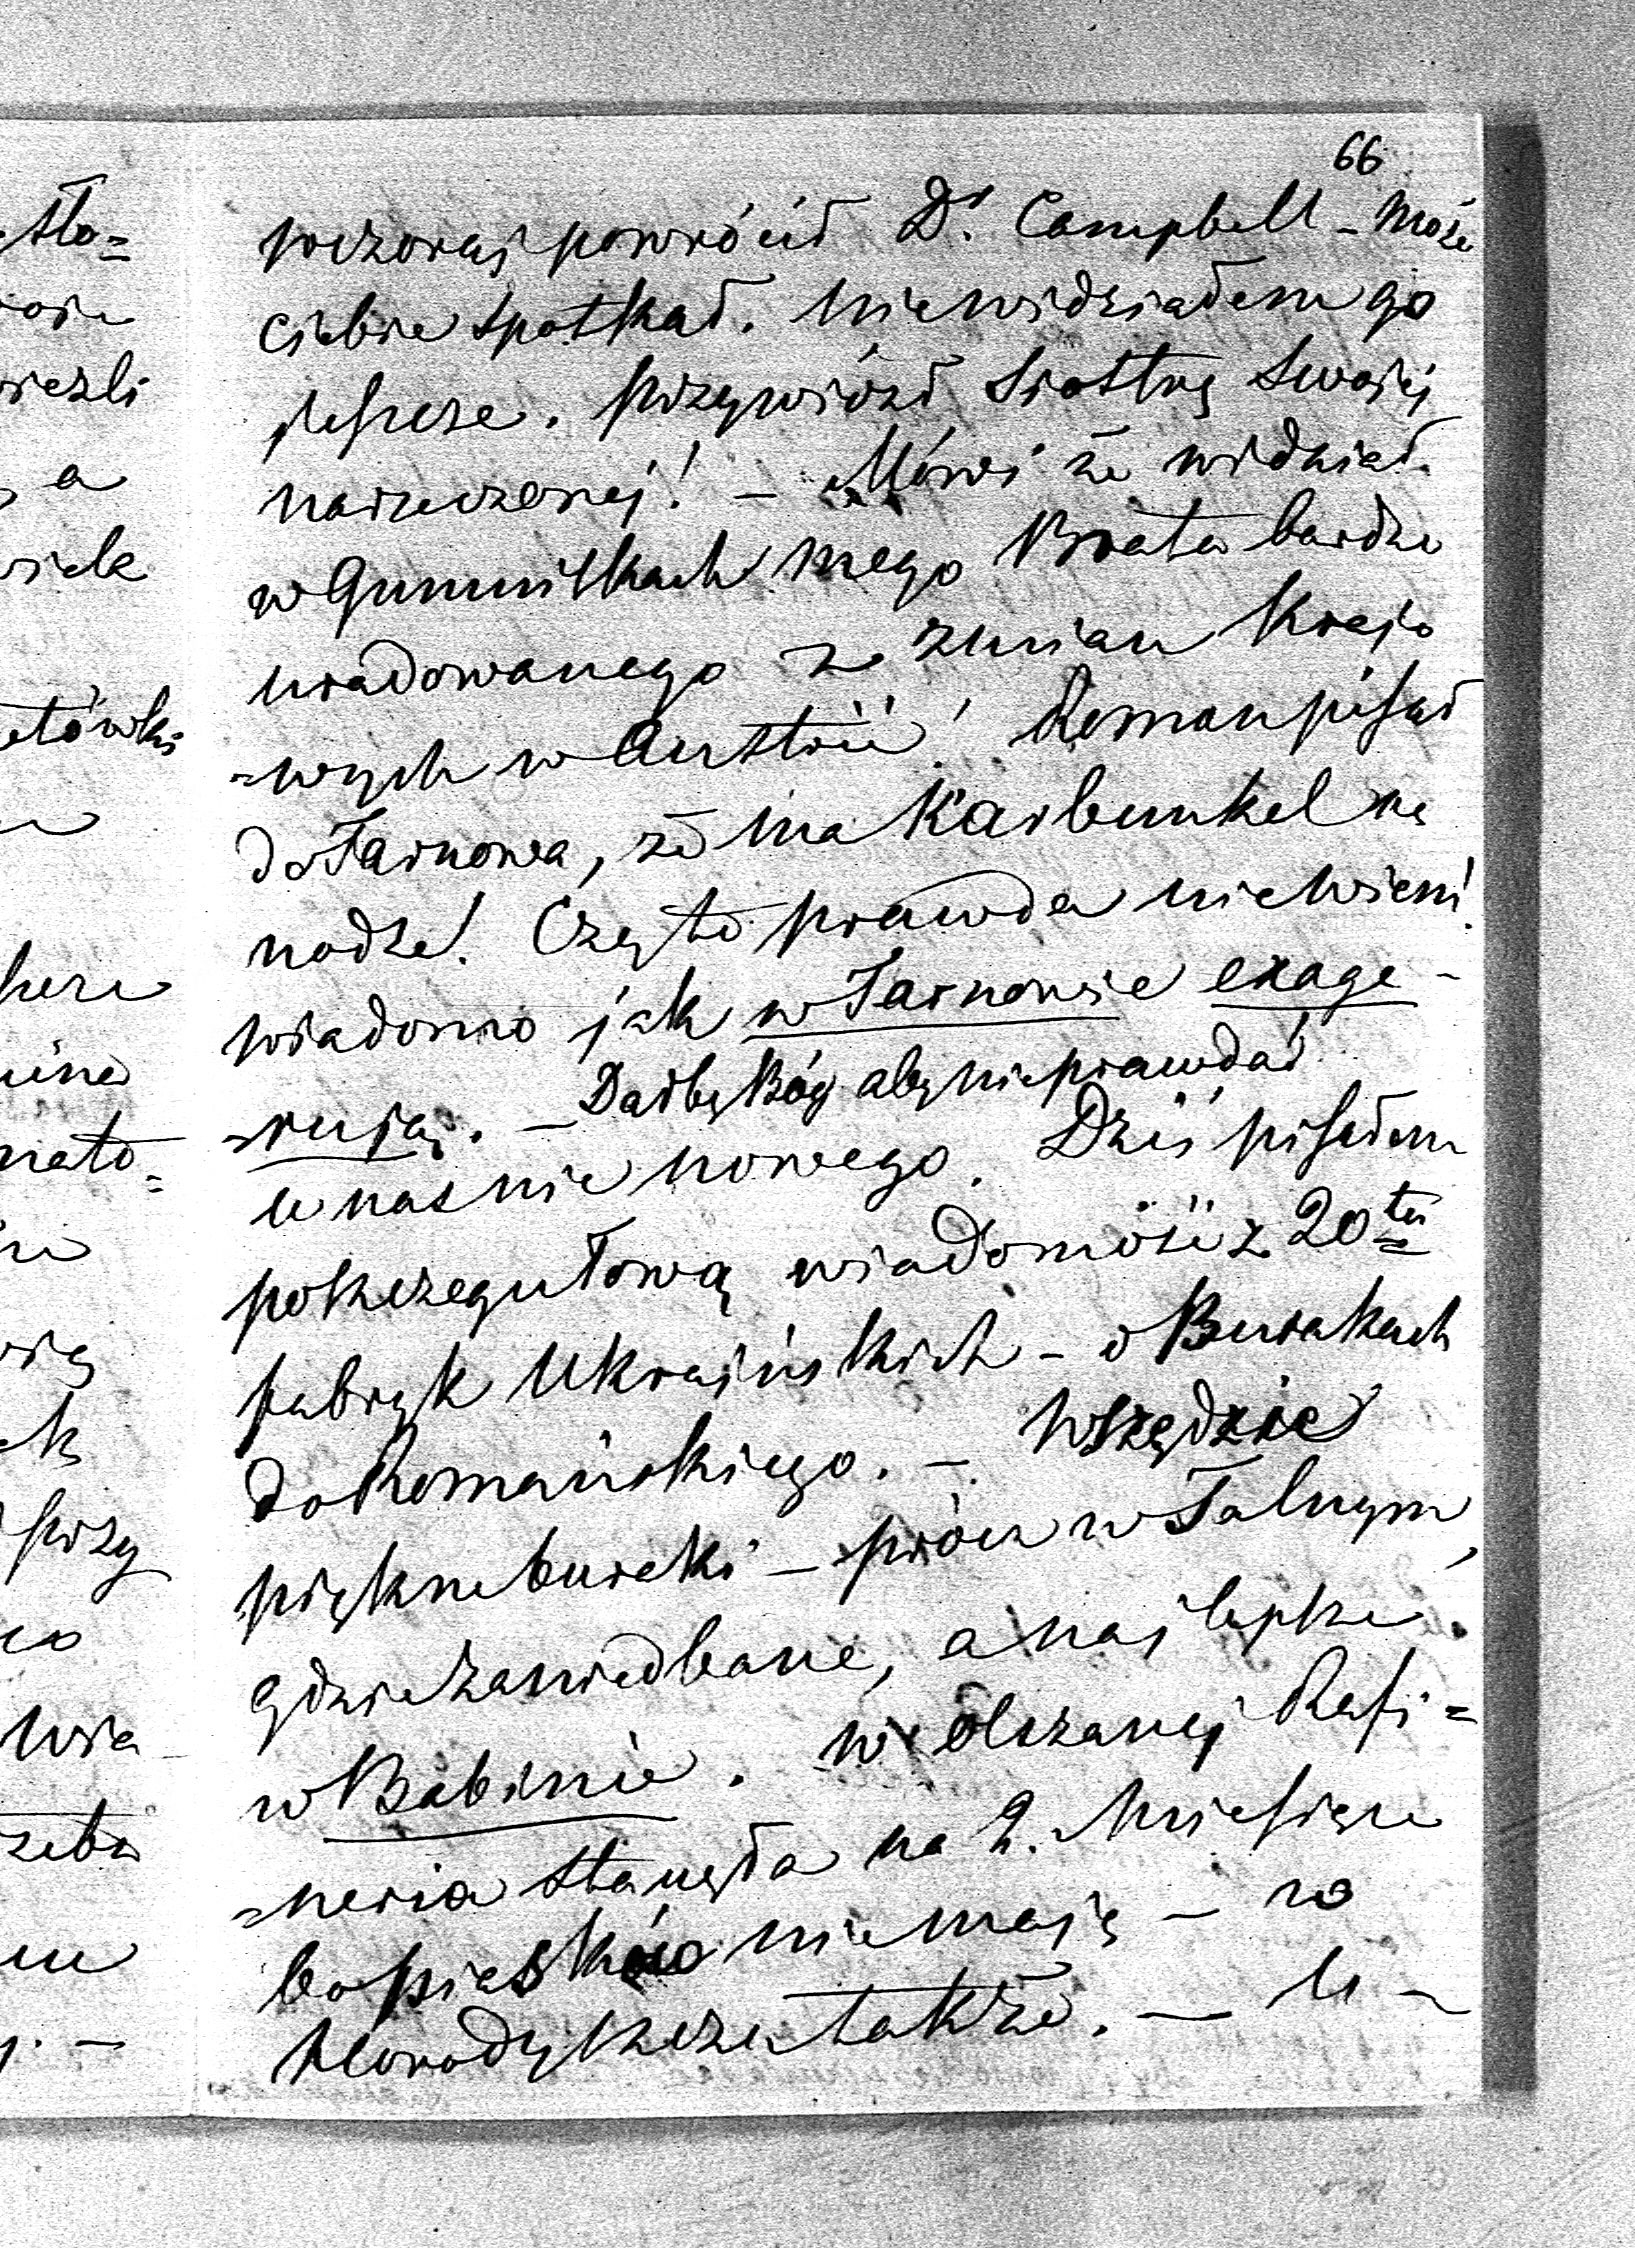 66
wczoraj powrócił Dr. Campbell – może
ciebie spotkał. Niewidziałem go
jeszcze. Przywiózł siostrę swojej
narzeczonej! – Mówi że widział
w Gumniskach mego Brata bardzo
uradowanego ze zmian krajo
=wych w Austrii! Roman pisał
do Tarnowa, że ma Karbunkel na
nodze! Czy to prawda niewiem!
wiadomo jak w Tarnowie exage-
=rują. – Dałby Bóg aby nieprawda!
u nas nic nowego. Dziś posłałem
poszczegułową wiadomość z 20tu
fabryk Ukraińskich – o Burakach
do Romańskiego. – Wszędzie
piękne buraki – prócz w Talnym,
gdzie zaniedbane, a najlepsze
w Babinie. w Olszanej Rafi=
=neria stanęła na 2. Miesiące
bo piasków nie mają – w
Horodyszczu także. – U –